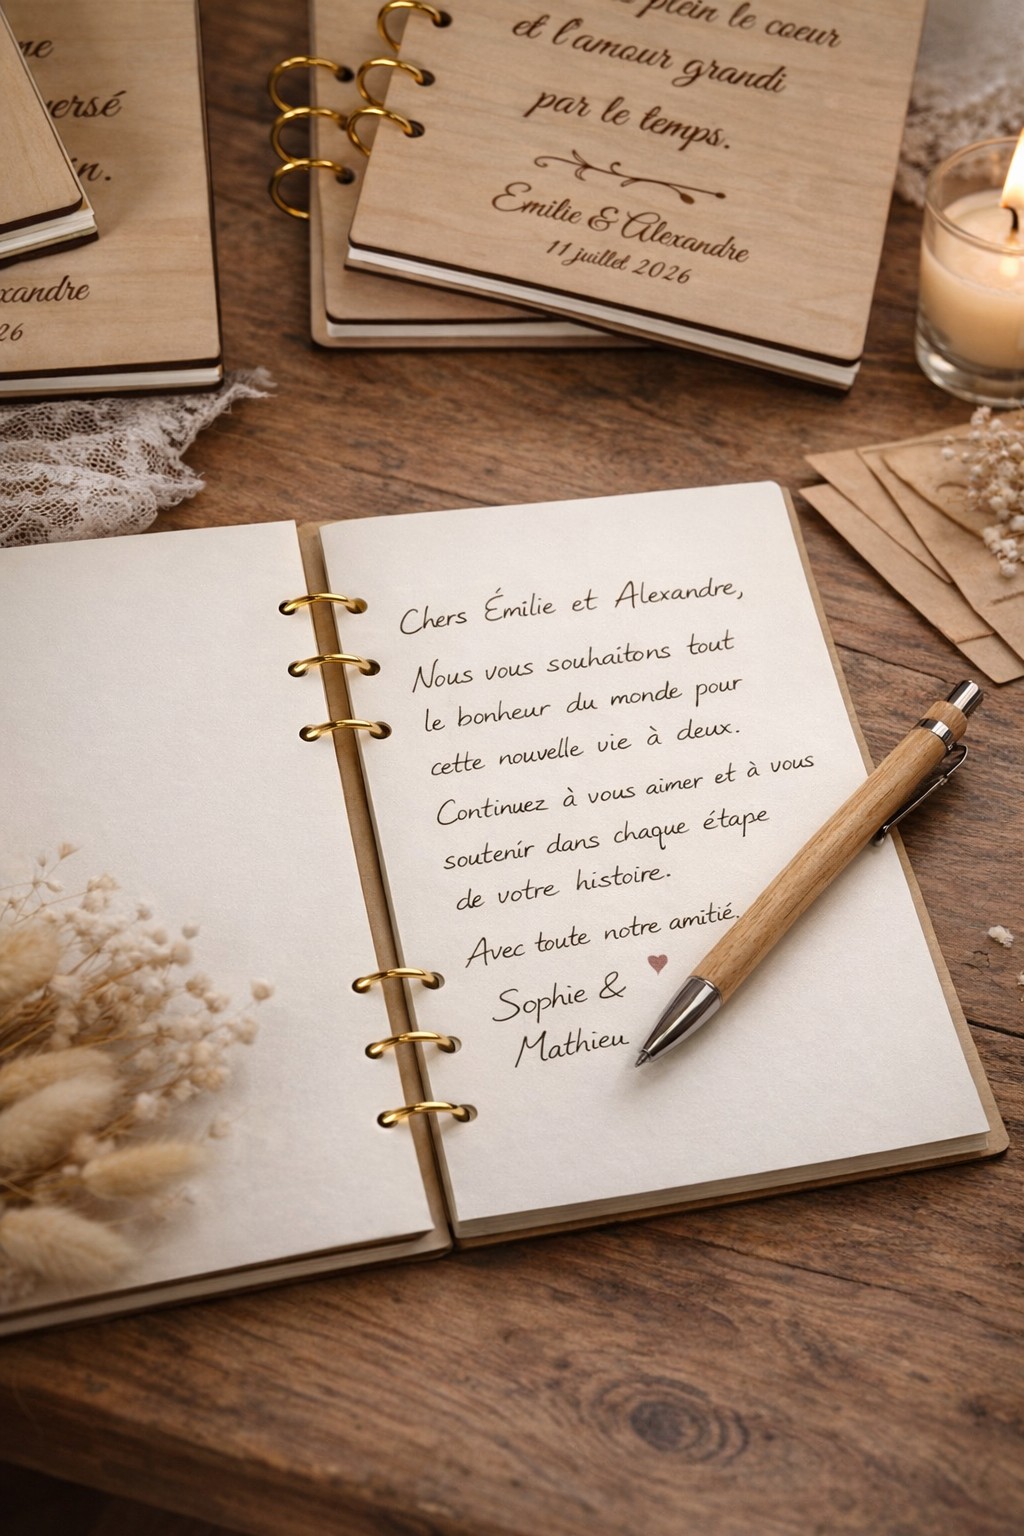 versé
in.
xandre
26
plein le coeur
et l'amour grandi
par le temps.
Emilie & Alexandre
11 juillet 2026
Chers Émilie et Alexandre,
Nous vous souhaitons tout
le bonheur du monde pour
cette nouvelle vie à deux.
Continuez à vous aimer et à vous
soutenir dans chaque étape
de votre histoire.
Avec toute notre amitié.
Sophie &
Mathieu